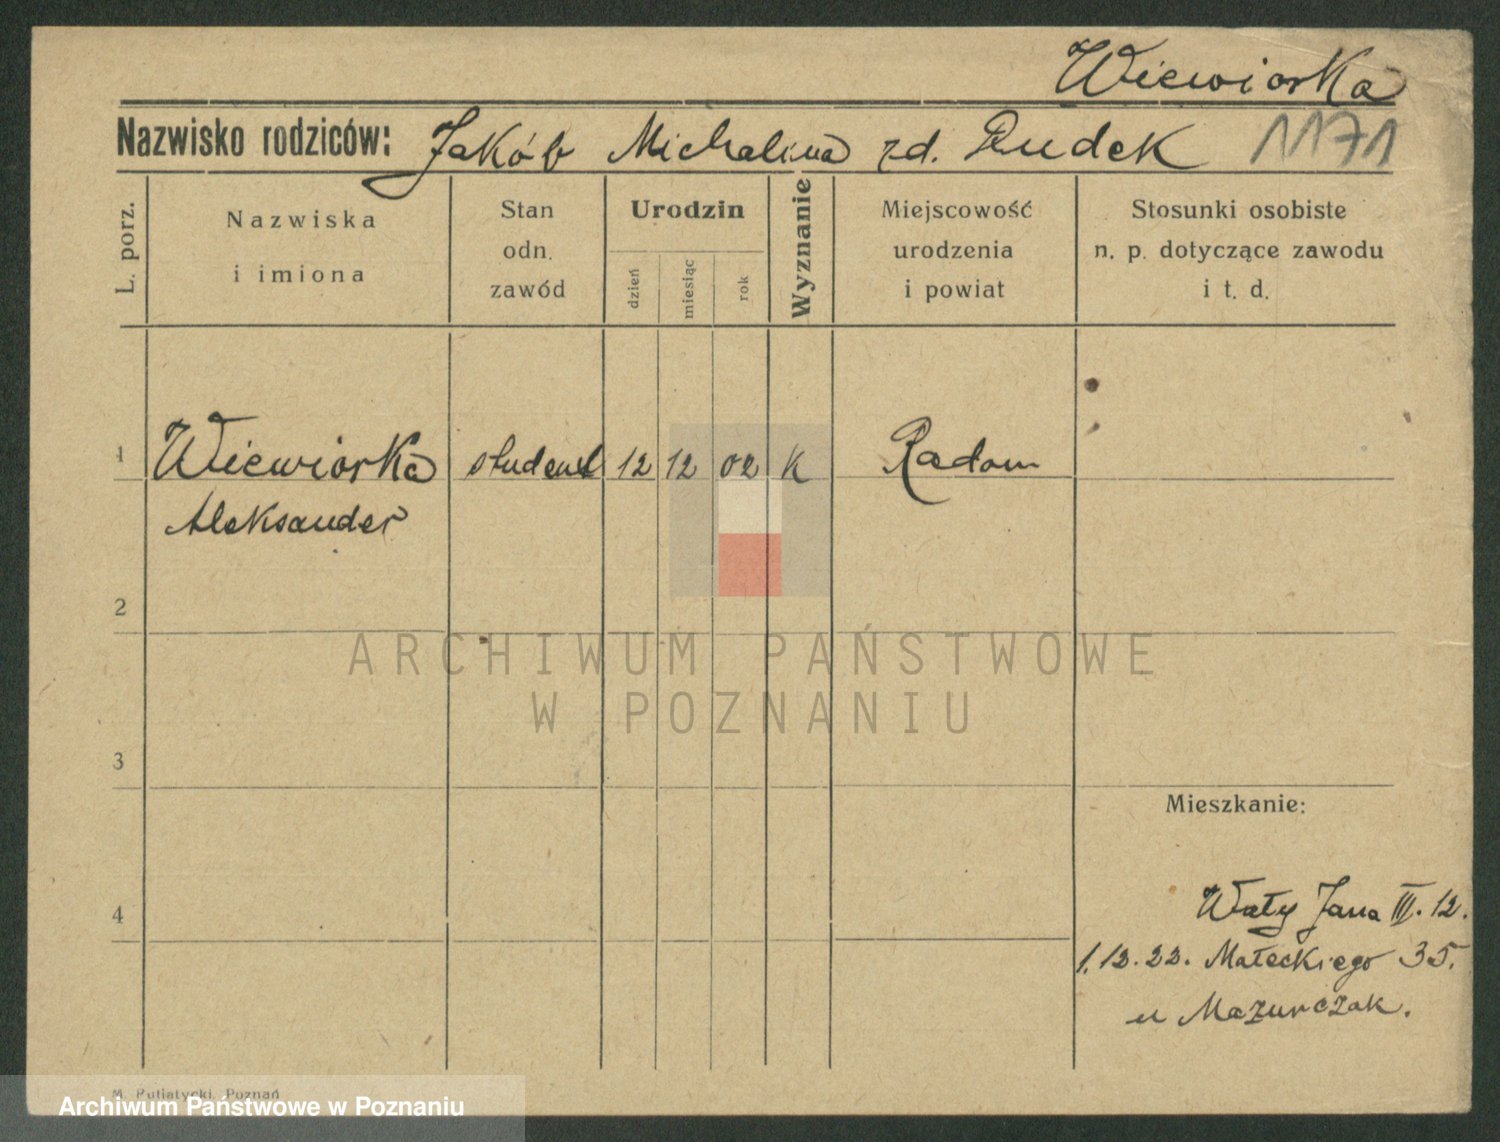 Wiewiorka
Nazwisko rodziców: Jakób Michalina zd. Rudek 1171
L. porz.
Nazwiska
i imiona
Stan
odn.
zawód
Urodzin
dzień
miesiąc
rok
Wyznanie
Miejscowość
urodzenia
i powiat
Stosunki osobiste
n. p. dotyczące zawodu
i t. d.
1 Wiewiorka student 12 12 02 K Radom
Aleksander
2
ARCHIWUM PAŃSTWOWE
W POZNANIU
3
Mieszkanie:
4
Wały Jana III. 12.
1.12.22. Małeckiego 35.
u Mazurczak.
M. Putiatycki, Poznań
Archiwum Państwowe w Poznaniu